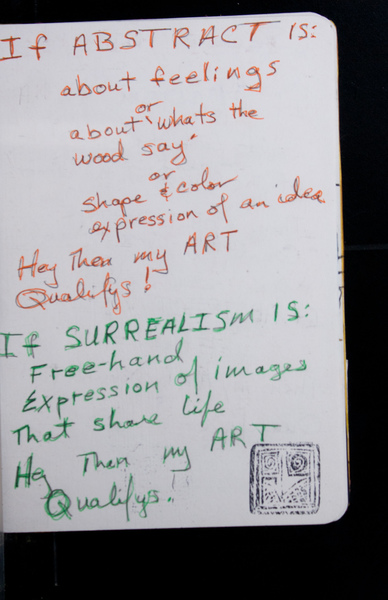 If ABSTRACT is:
about feelings
or
about "whats the
wood say"
or
shape & color
expression of an idea
Hey Then my ART
Qualifys!
If SURREALISM IS:
Free-hand
Expression of images
That share life
Hey Then my ART
Qualifys!